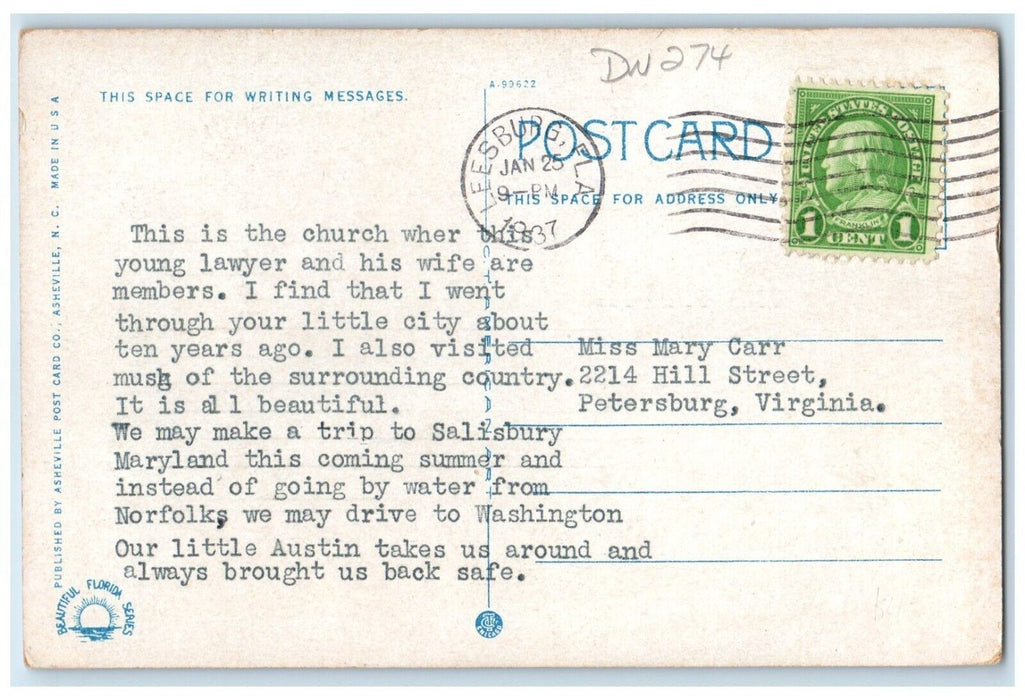 DW 274
A-99622
THIS SPACE FOR WRITING MESSAGES.
POST CARD
THIS SPACE FOR ADDRESS ONLY
LEESBURG, FLA
JAN 25
9-PM
1937
UNITED STATES POSTAGE
FRANKLIN
1 CENT 1
This is the church wher this
young lawyer and his wife are
members. I find that I went
through your little city about
ten years ago. I also visited
mush of the surrounding country.
It is all beautiful.
We may make a trip to Salisbury
Maryland this coming summer and
instead of going by water from
Norfolk, we may drive to Washington
Our little Austin takes us around and
always brought us back safe.
Miss Mary Carr
2214 Hill Street,
Petersburg, Virginia.
PUBLISHED BY ASHEVILLE POST CARD CO., ASHEVILLE, N. C. MADE IN U S A
BEAUTIFUL FLORIDA SERIES
CHICAGO